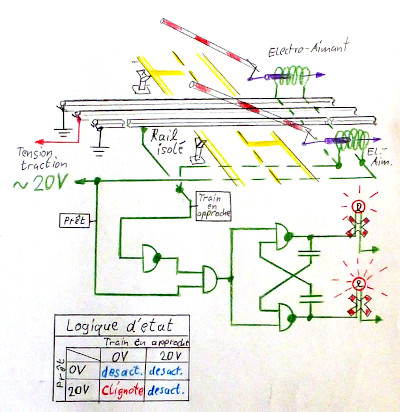 Electro-Aimant
Tension
traction
Rail
isolé
El.
Aim.
~20V
Prêt
Train
en
approche
Logique d'état
Train en approche
0V 20V
Prêt
0V desact. desact.
20V Clignote desact.